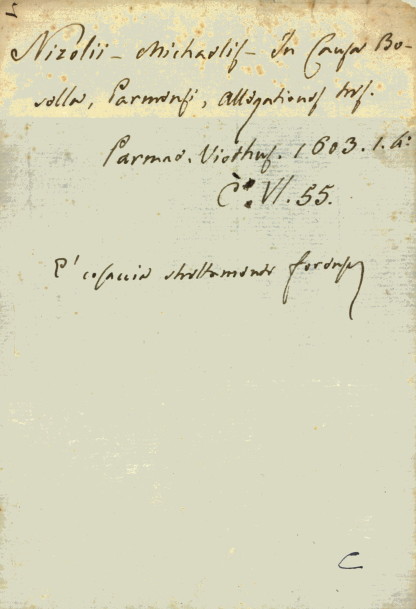 Nizolii - Michaelis - In Causa Bo-
sella, Parmensi, Allegationes tres.
Parmae. Viothus. 1603. 1. 4:
C. VI. 55.
E' cosaccia strettamente forense
C